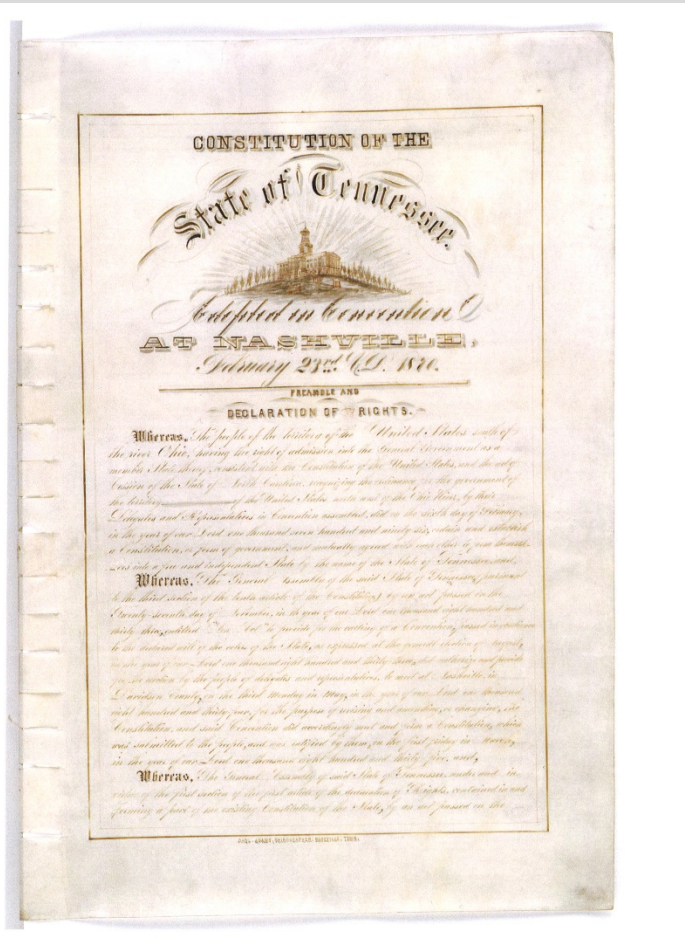 CONSTITUTION OF THE
State of Tennessee.
Adopted in Convention
AT NASHVILLE,
February 23rd A.D. 1870.
PREAMBLE AND
DECLARATION OF RIGHTS.
Whereas, The people of the territory of the United States south of
the river Ohio, having the right of admission into the General Government as a
member State thereof, consistent with the Constitution of the United States, and the act of
Cession of the State of North Carolina, recognizing the ordinance for the government of
the territory of the United States north west of the Ohio River, by their
Delegates and Representatives in Convention assembled, did on the sixth day of February,
in the year of our Lord one thousand seven hundred and ninety six, ordain and establish
a Constitution, or form of government, and mutually agreed with each other to form themselves
into a free and independent State by the name of the State of Tennessee, and,
Whereas, The General Assembly of the said State of Tennessee, pursuant
to the third section of the tenth article of the Constitution, by an act passed on the
Twenty-seventh day of November, in the year of our Lord one thousand eight hundred and
thirty three, entitled "An Act" to provide for the calling of a Convention, passed in obedience
to the declared will of the voters of the State, as expressed at the general election of August,
in the year of our Lord one thousand eight hundred and thirty three, did authorize and provide
for the election by the people of delegates and representatives, to meet at Nashville, in
Davidson County, on the third Monday in May, in the year of our Lord one thousand
eight hundred and thirty four, for the purpose of revising and amending, or changing, the
Constitution, and said Convention did accordingly meet and form a Constitution, which
was submitted to the people, and was ratified by them, on the first Friday in March,
in the year of our Lord one thousand eight hundred and thirty five, and,
Whereas, The General Assembly of said State of Tennessee, under and in
virtue of the first section of the first article of the declaration of Rights, contained in and
forming a part of the existing Constitution of the State, by an act passed on the